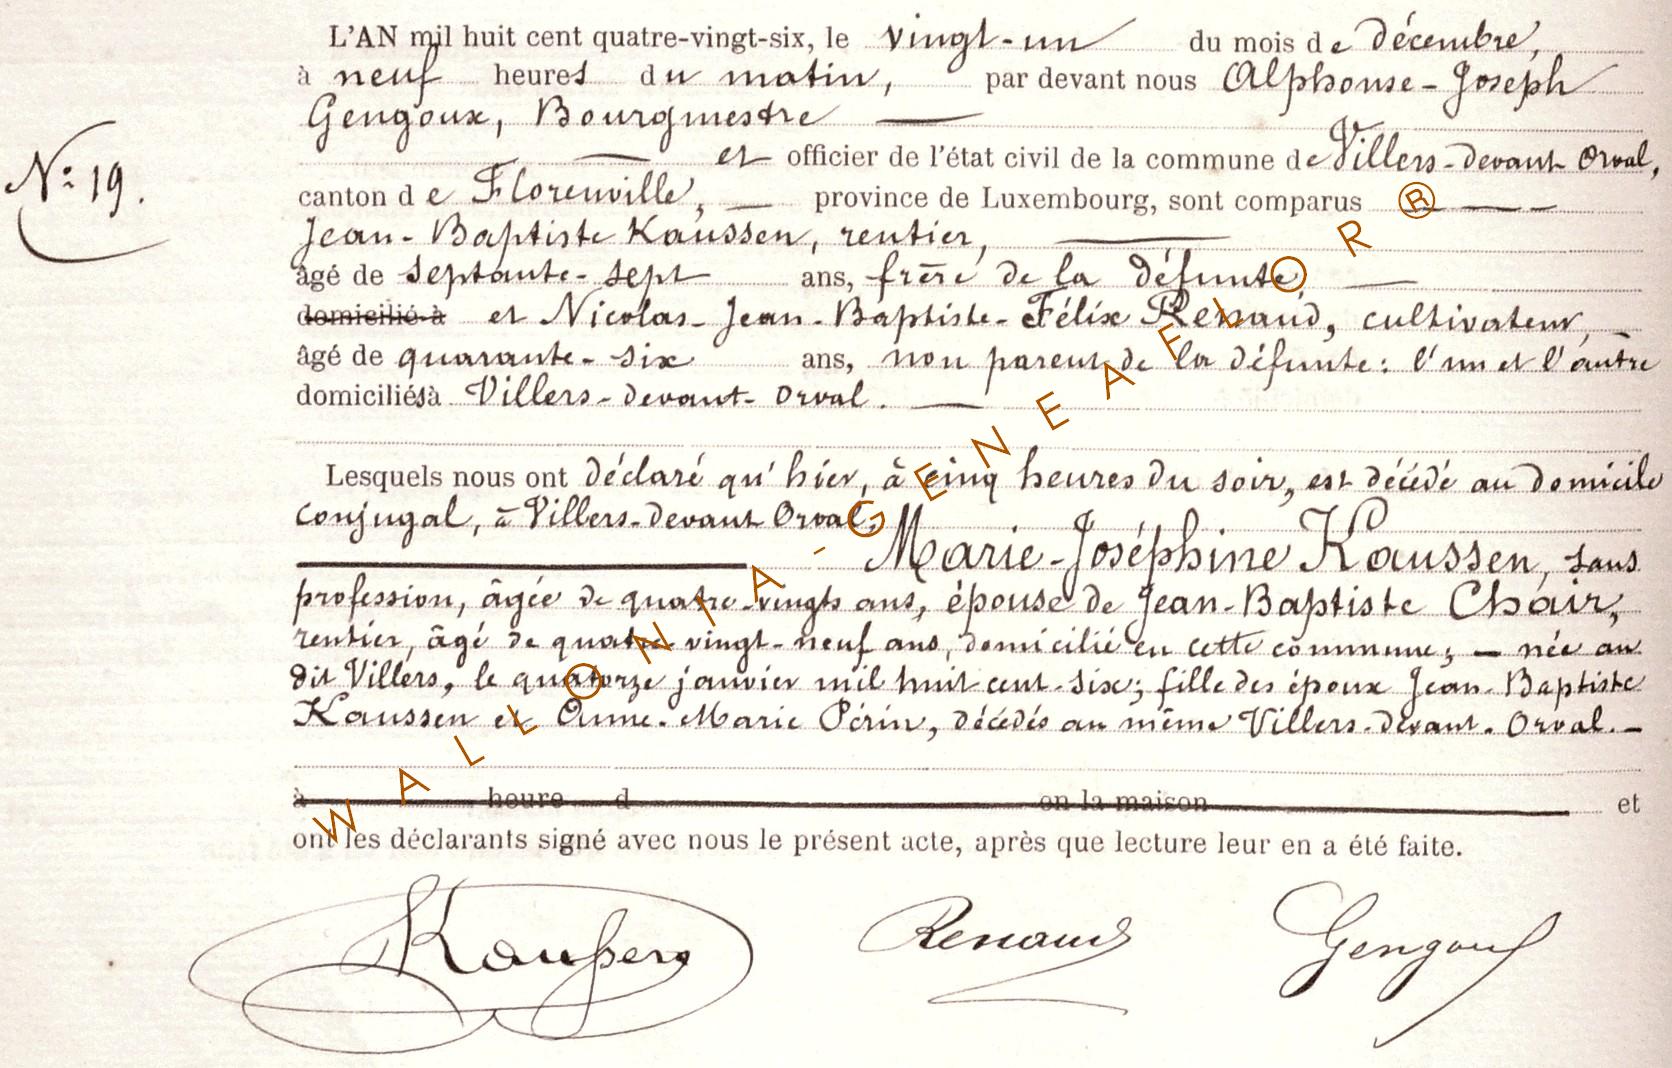 L'AN mil huit cent quatre-vingt-six, le vingt-un du mois de décembre,
à neuf heures du matin, par devant nous Alphonse-Joseph
Gengoux, Bourgmestre
et officier de l'état civil de la commune de Villers-devant Orval,
N° 19.
canton de Florenville, province de Luxembourg, sont comparus
Jean-Baptiste Kaussen, rentier,
âgé de septante-sept ans, frère de la défunte
domicilié à et Nicolas-Jean-Baptiste-Félix Renaud, cultivateur,
âgé de quarante-six ans, non parent de la défunte: l'un et l'autre
domiciliés à Villers-devant-Orval.
Lesquels nous ont déclaré qu'hier, à cinq heures du soir, est décédé au domicile
conjugal, à Villers-devant Orval,
Marie-Joséphine Kaussen, sans
profession, âgée de quatre-vingts ans, épouse de Jean-Baptiste Chair,
rentier, âgé de quatre vingt-neuf ans, domicilié en cette commune; — née au
dit Villers, le quatorze janvier mil huit cent-six; fille des époux Jean-Baptiste
Kaussen et Anne-Marie Périn, décédés au même Villers-devant-Orval. —
à heure d en la maison et
ont les déclarants signé avec nous le présent acte, après que lecture leur en a été faite.
Kaussen Renaud Gengoux
WALLONIA - GENEAFLOR®